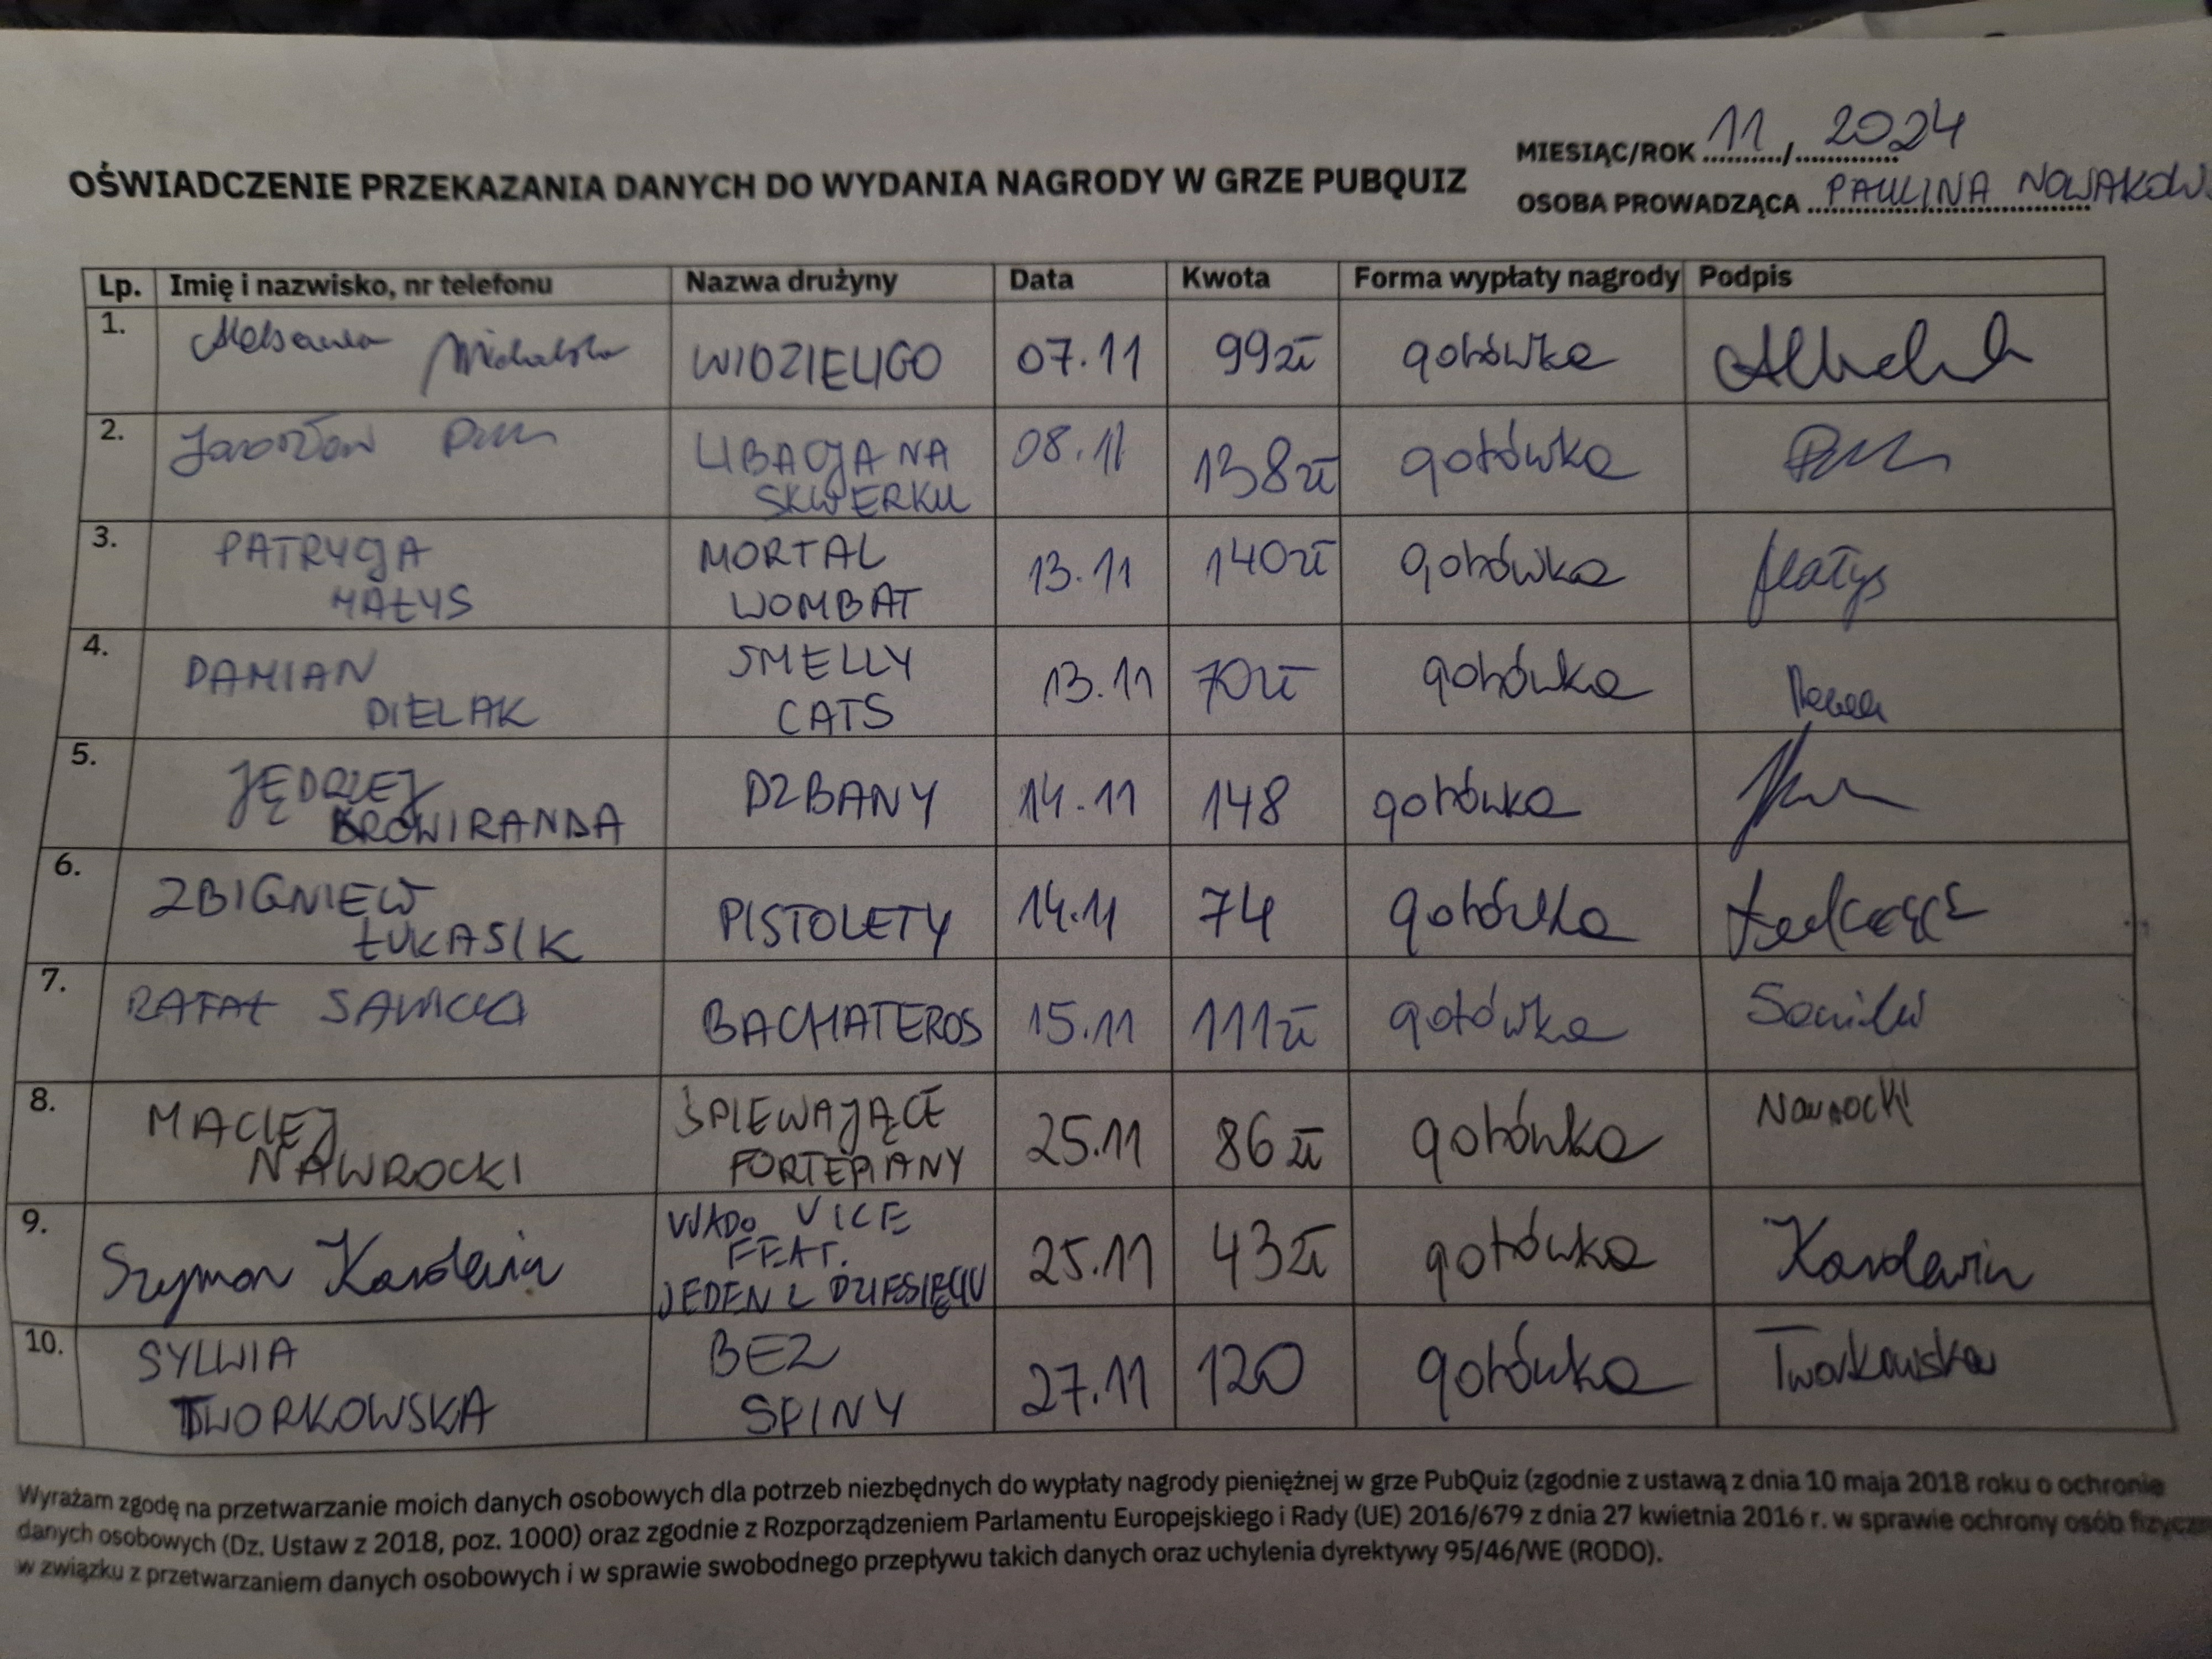 MIESIĄC/ROK 11 / 2024
OŚWIADCZENIE PRZEKAZANIA DANYCH DO WYDANIA NAGRODY W GRZE PUBQUIZ
OSOBA PROWADZĄCA PAULINA NOWAKOW
Lp. Imię i nazwisko, nr telefonu Nazwa drużyny Data Kwota Forma wypłaty nagrody Podpis
1. Aleksandra Michalska WIDZIELIGO 07.11 99zł gotówka
2. Jarosław LIBACJA NA 08.11 138zł gotówka
SKWERKU
3. PATRYCJA MORTAL 13.11 140zł gotówka Małys
MAŁYS WOMBAT
4. DAMIAN SMELLY 13.11 70zł gotówka
DIELAK CATS
5. JĘDRZEJ DZBANY 14.11 148 gotówka
6. ZBIGNIEW PISTOLETY 14.11 74 gotówka
ŁUKASIK
7. RAFAŁ BACHATEROS 15.11 111zł gotówka
8. MACIEJ ŚPIEWAJĄCE 25.11 86 zł gotówka Nawrocki
NAWROCKI FORTEPIANY
9. Szymon VICE 25.11 43zł gotówka
FEAT.
JEDEN Z DZIESIĘCIU
10. SYLWIA BEZ 27.11 120 gotówka Tworkowska
TWORKOWSKA SPINY
Wyrażam zgodę na przetwarzanie moich danych osobowych dla potrzeb niezbędnych do wypłaty nagrody pieniężnej w grze PubQuiz (zgodnie z ustawą z dnia 10 maja 2018 roku o ochronie
danych osobowych (Dz. Ustaw z 2018, poz. 1000) oraz zgodnie z Rozporządzeniem Parlamentu Europejskiego i Rady (UE) 2016/679 z dnia 27 kwietnia 2016 r. w sprawie ochrony osób fizyczn
w związku z przetwarzaniem danych osobowych i w sprawie swobodnego przepływu takich danych oraz uchylenia dyrektywy 95/46/WE (RODO).